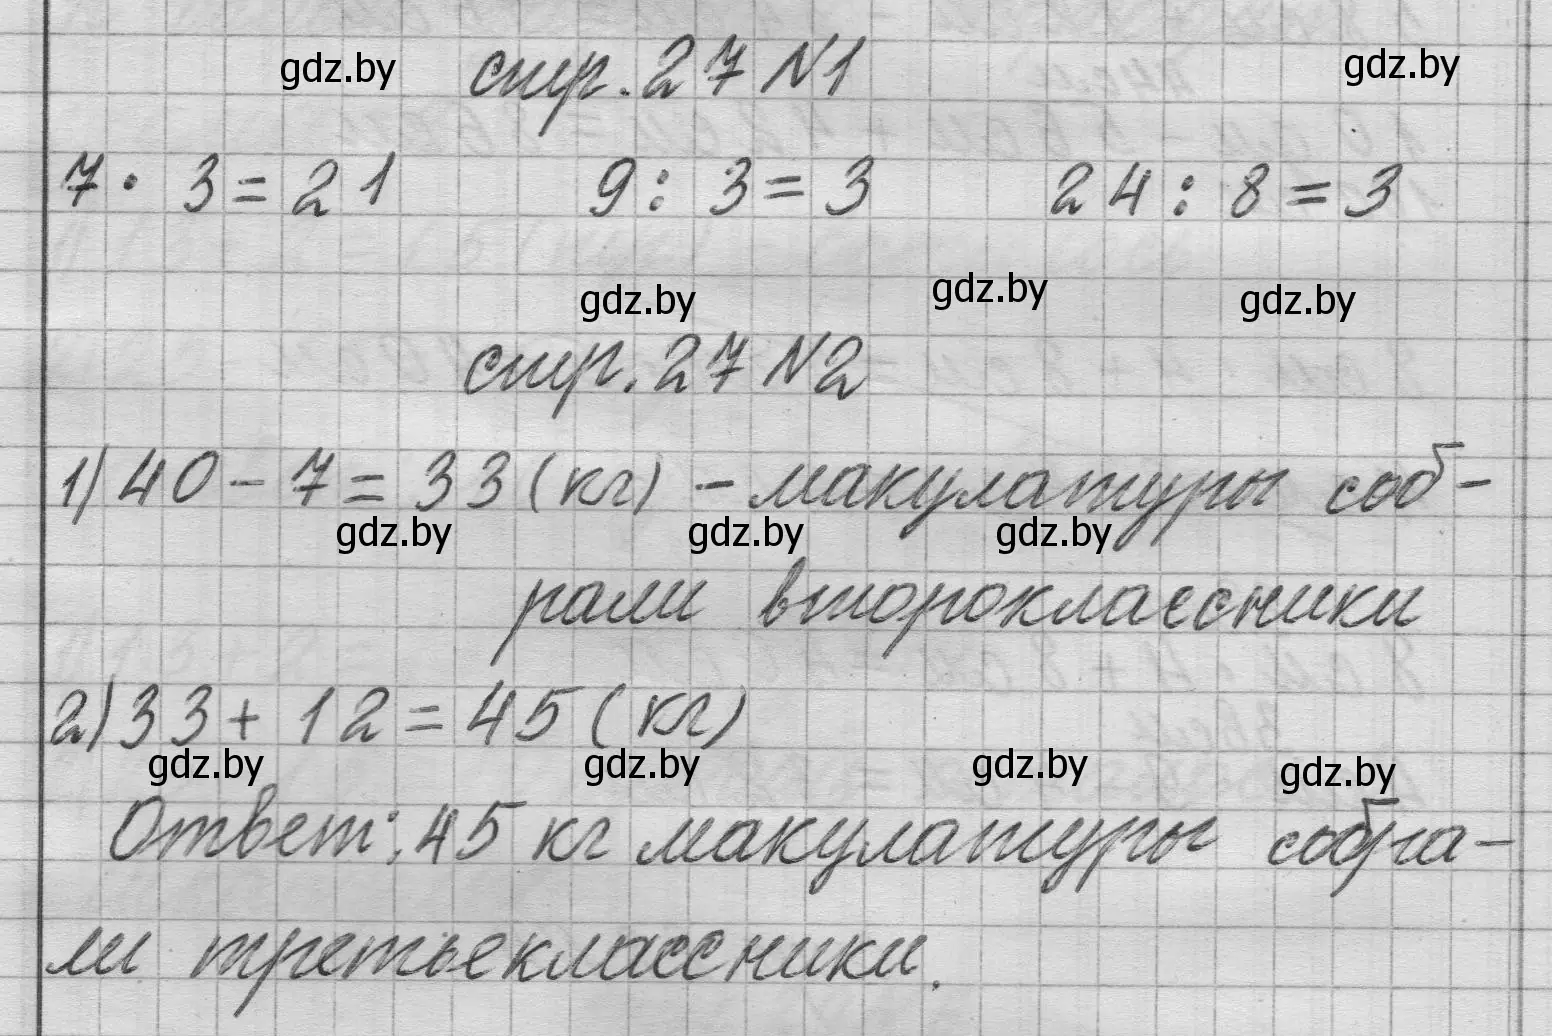 gdz.by стр. 27 №1 gdz.by
7 · 3 = 21 9 : 3 = 3 24 : 8 = 3
gdz.by gdz.by gdz.by
стр. 27 №2
1) 40 - 7 = 33 (кг) - макулатуры соб-
gdz.by gdz.by gdz.by
рали второклассники
2) 33 + 12 = 45 (кг)
gdz.by gdz.by gdz.by gdz.by
Ответ: 45 кг макулатуры собра-
ли третьеклассники.